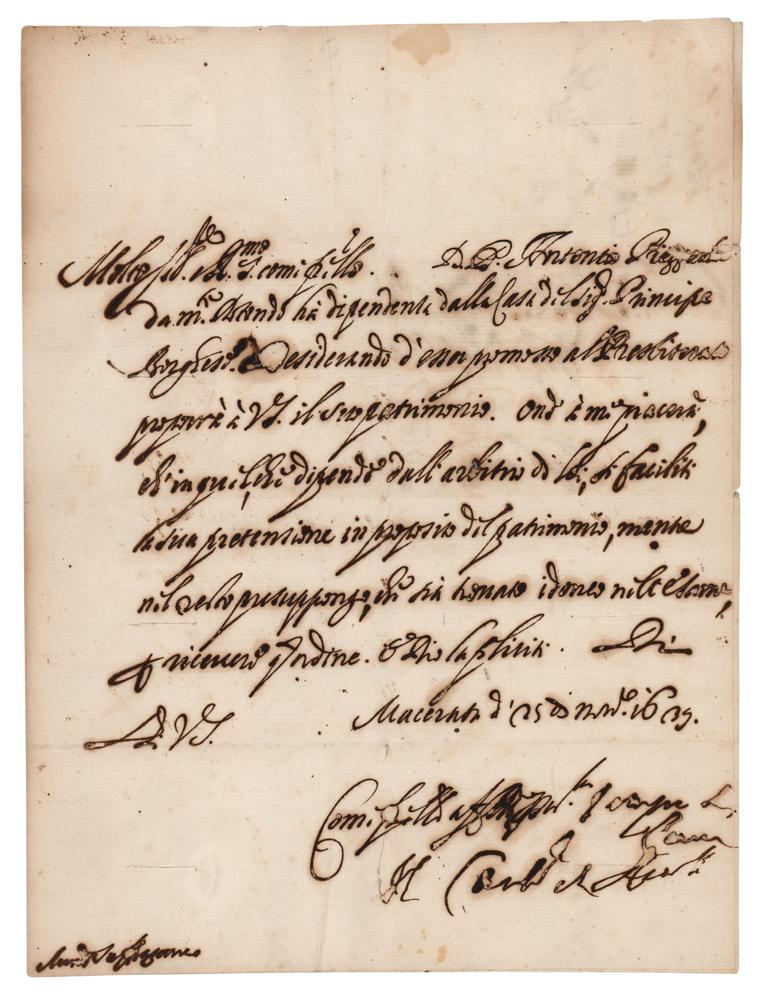 Molto Ill.re et R.mo S.r come fr.ello. D. P. Antonio
da m.te Rotondo hà dipendenza dalla Casa del Sig.r Principe
Borghese. Desiderando d'esser promosso al Presbiterato
proporrà à V.S. il suo patrimonio. Onde à me piacerà,
ch'in quel, che dipende dall'arbitrio di lei, si faciliti
la sua pretensione in proposito del patrimonio, mentre
nel resto presuppongo, che sia trovato idoneo nell'esame,
p ricevere q. ordine. E Dio la feliciti. Di
Macerata à 25 di nov.e 1629.
Di V.S.
Come fr.ello aff.mo
Il Card.